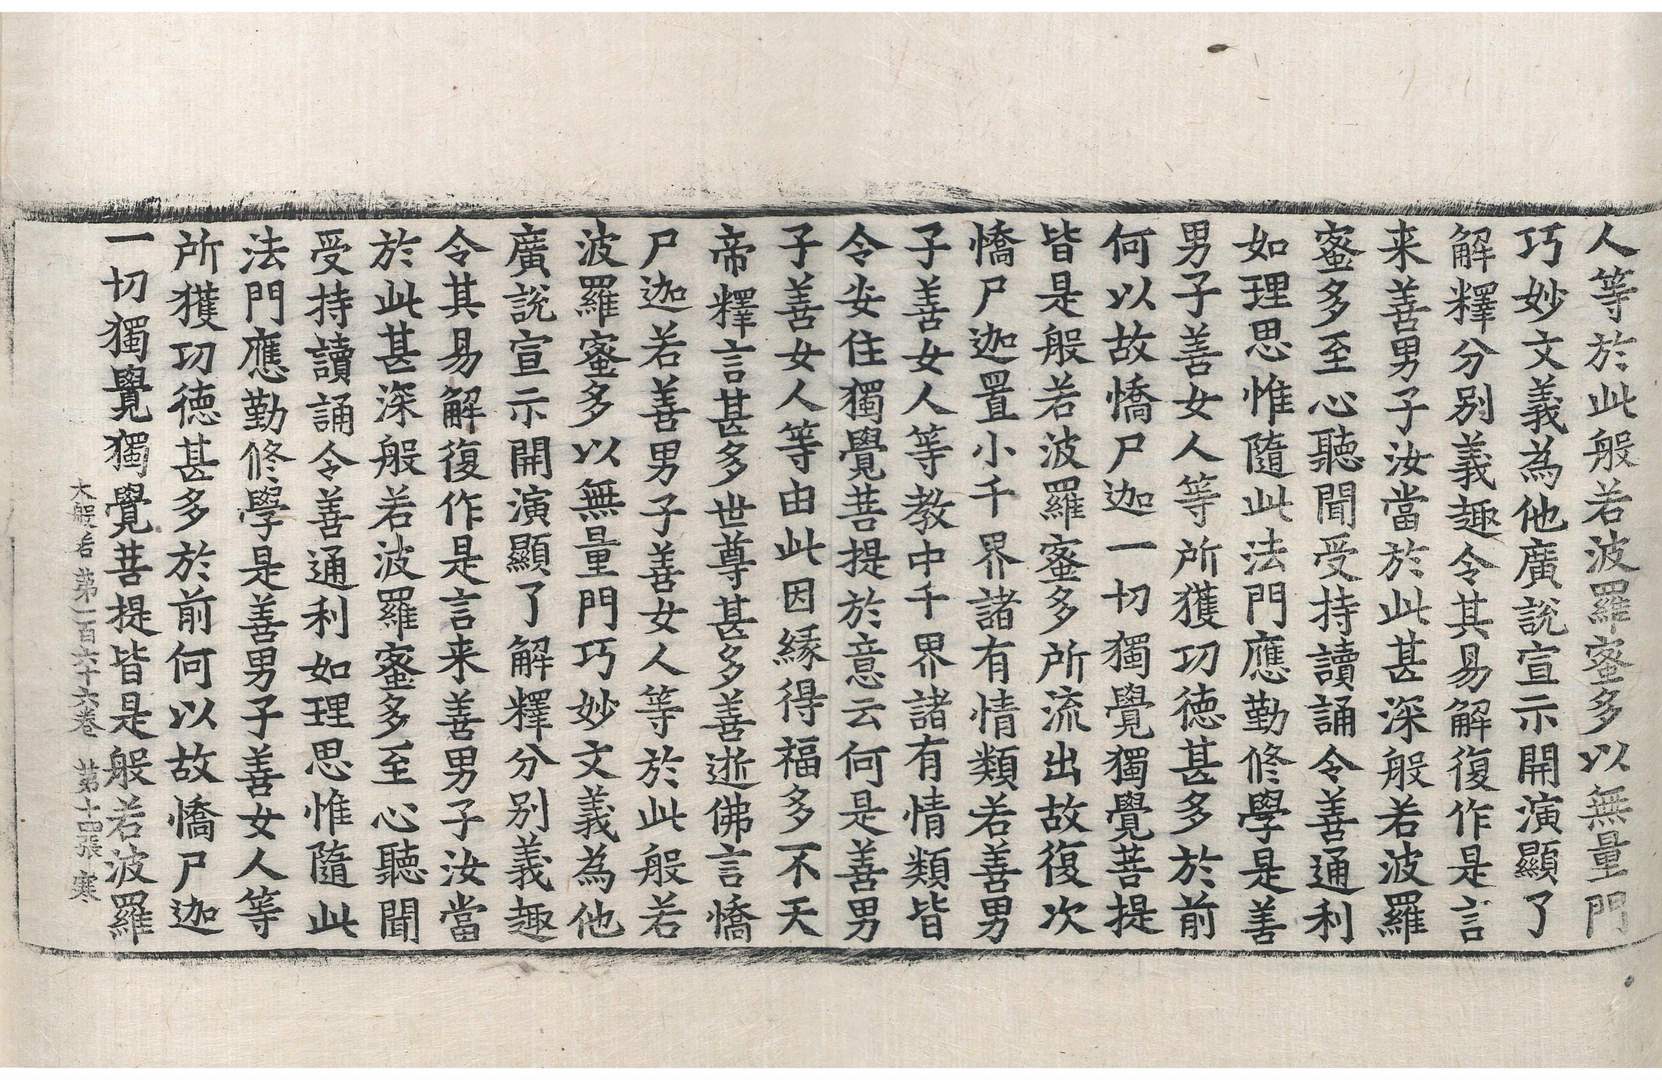 人等於此般若波羅蜜多以無量門
巧妙文義為他廣說宣示開演顯了
解釋分別義趣令其易解復作是言
来善男子汝當於此甚深般若波羅
蜜多至心聽聞受持讀誦令善通利
如理思惟隨此法門應勤修學是善
男子善女人等所獲功德甚多於前
何以故憍尸迦一切獨覺獨覺菩提
皆是般若波羅蜜多所流出故復次
憍尸迦置小千界諸有情類若善男
子善女人等教中千界諸有情類皆
令安住獨覺菩提於意云何是善男
子善女人等由此因緣得福多不天
帝釋言甚多世尊甚多善逝佛言憍
尸迦若善男子善女人等於此般若
波羅蜜多以無量門巧妙文義為他
廣說宣示開演顯了解釋分別義趣
令其易解復作是言来善男子汝當
於此甚深般若波羅蜜多至心聽聞
受持讀誦令善通利如理思惟隨此
法門應勤修學是善男子善女人等
所獲功德甚多於前何以故憍尸迦
一切獨覺獨覺菩提皆是般若波羅
大般若 第一百六十六卷 第十四張 寒